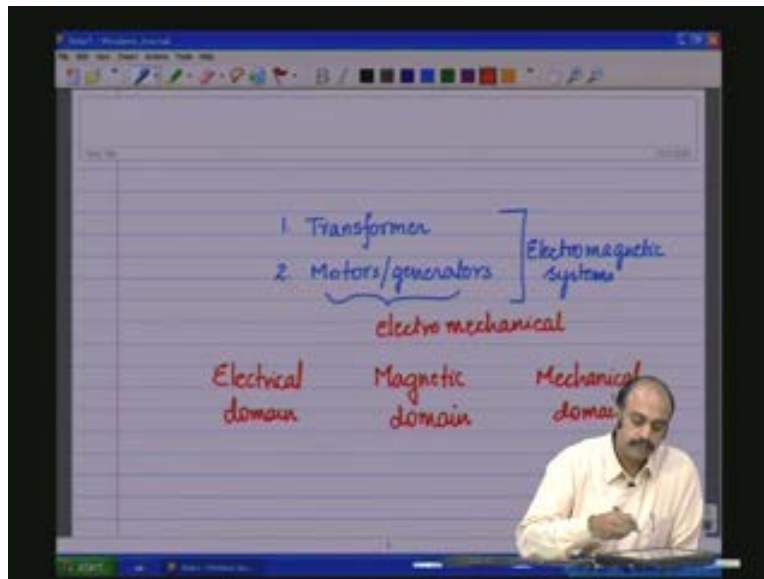 1. Transformer
2. Motors/generators
Electromagnetic
systems
electromechanical
Electrical
domain
Magnetic
domain
Mechanical
START